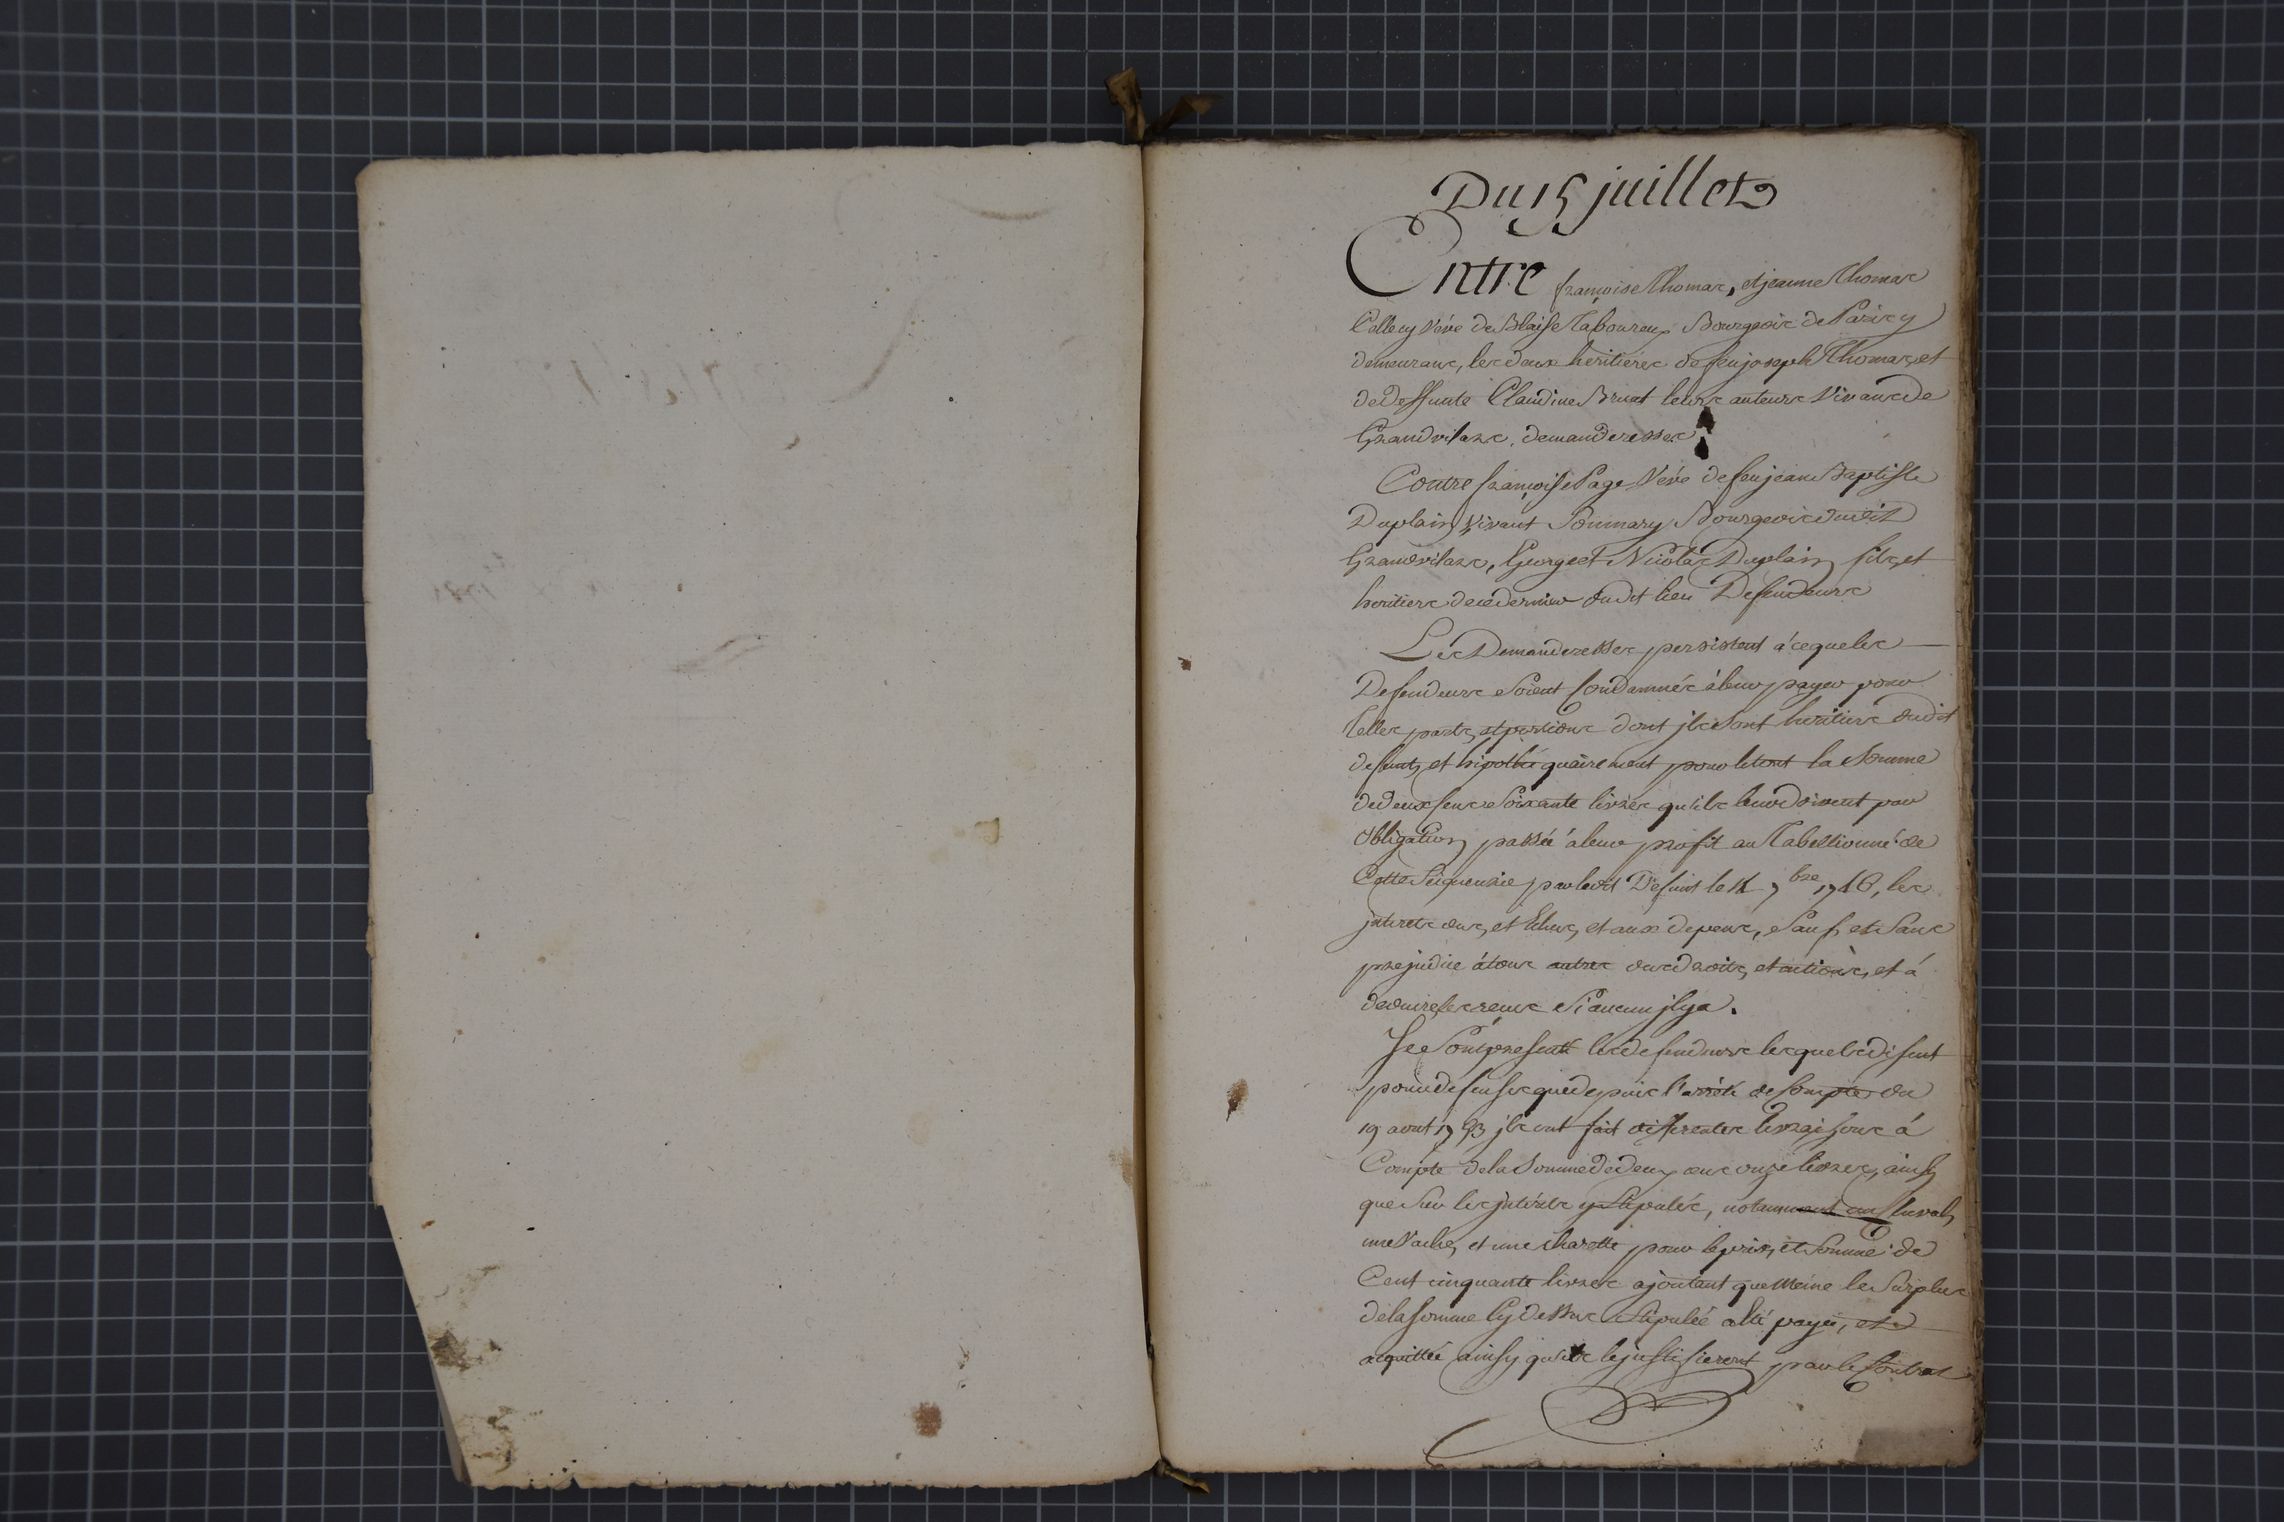 Du 15 juillet
Entre françoise Thomas, et jeanne Thomas
Celle cy v'eve de Blaise Taboureux Bourgeois de
demeurans, les deux heritieres de feu joseph Thomas, et
de Deffunte Claudine Bruat leurs auteurs vivans de
Grandvilars. demanderesses
Contre françoise Page v'eve de feu jean Baptiste
Duplain vivant Bourgeois dudit
Grandvilars, George et Nicolas Duplain fils, et
heritiers de ce dernier dudit lieu Defendeurs
Les Demanderesses persistent à ce que les
Defendeurs soient Condamnés à leur payer pour
telles parts, et portions dont jls sont heritiers dudit
defunt, et hipothéquairement pour le tout la somme
de deux cens soixante livres qu'ils leur doivent par
obligation passée à leur profit au Tabellionné de
Cette Seigneurie par ledit Défunt le 7bre, les
jnterets dus, et Echus, et aux depens, sauf, et sans
prejudice à tous autres dus droits, et actions, et à
deduire les reçus si aucun jl y a.
Se Sont présenté les defendeurs lesquels disent
pour defenses que depuis l'arrété de Compte du
19 aout 1753 jls ont fait differentes livraisons à
Compte de la Somme de deux cens onze livres, ainsy
que sur les jnterets y stipulés, notamment un cheval,
une vache, et une charette pour le prix, et somme de
Cent cinquante livres ajoutant que meme le Surplus
de la somme Cy dessus stipulée a été payée, et
acquittée ainsy qu'ils le justifieront par le Contrat